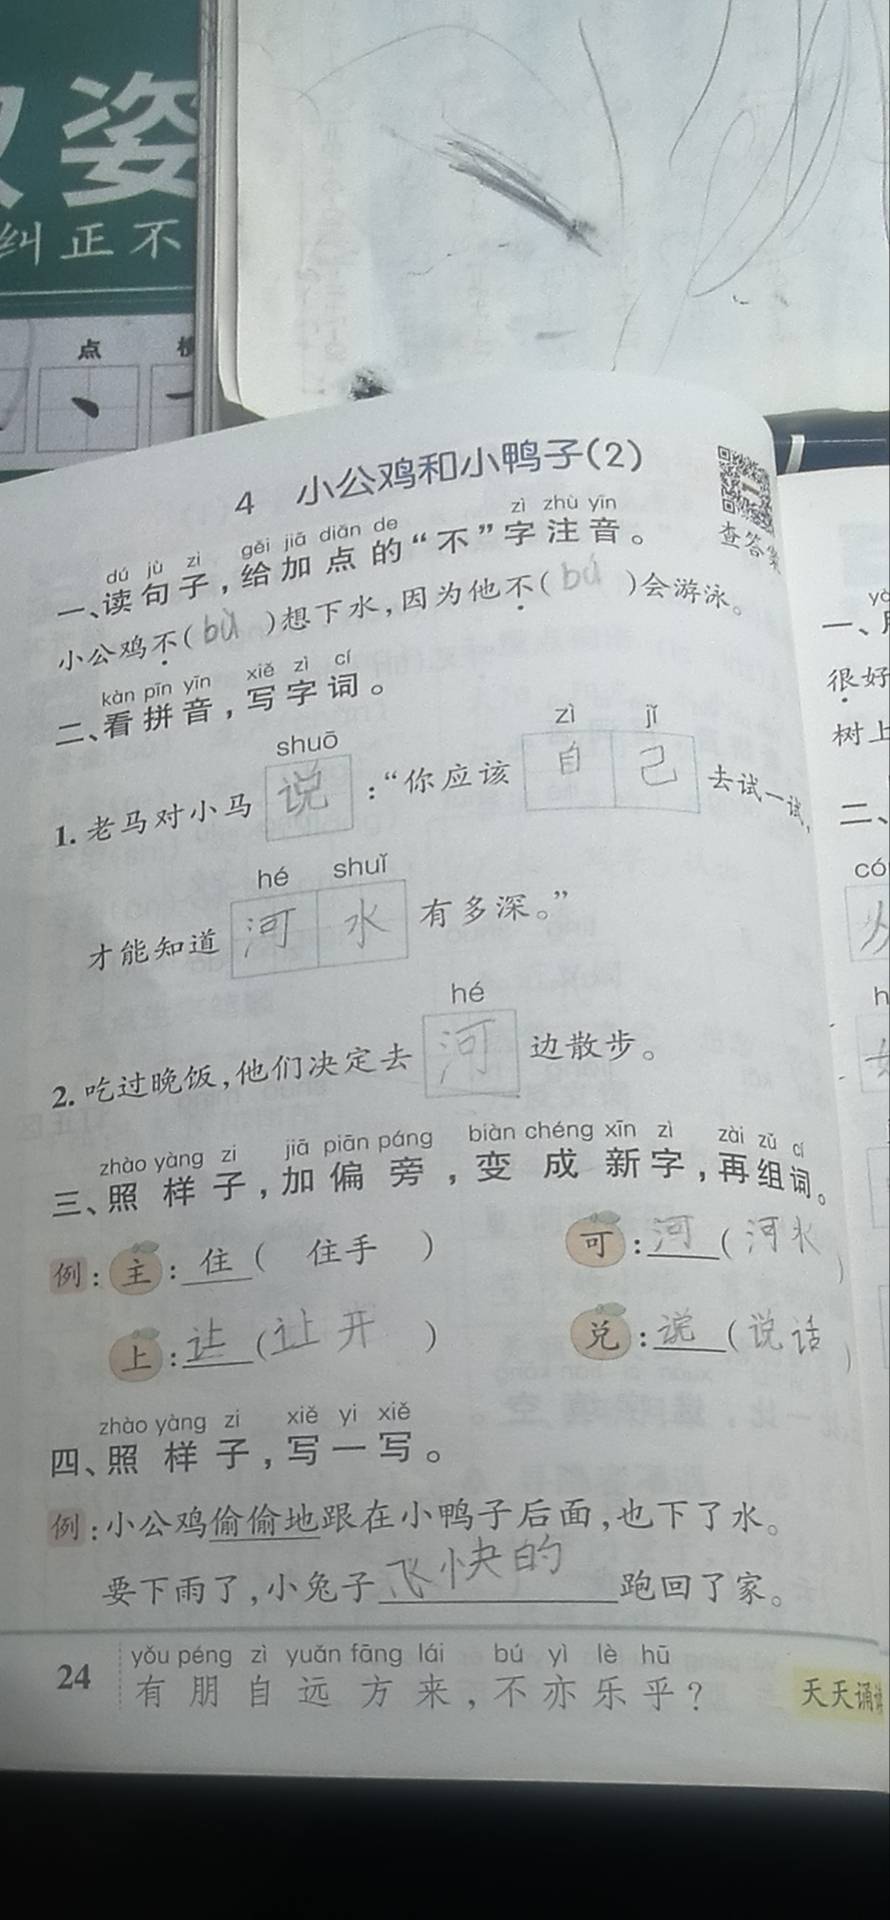 姿
纠正不
点
4 小公鸡和小鸭子(2)
查答案
dú jù zi gěi jiā diǎn de zì zhù yīn
一、读句子,给加点的“不”字注音。
小公鸡不( bù )想下水,因为他不( bú )会游泳。
kàn pīn yīn xiě zì cí
二、看拼音,写字词。
shuō zì jǐ
1. 老马对小马 说 :“你应该 自己 去试一试,
hé shuǐ
才能知道 河水 有多深。”
hé
2. 吃过晚饭,他们决定去 河 边散步。
zhào yàng zi jiā piān páng biàn chéng xīn zì zài zǔ cí
三、照样子,加偏旁,变成新字,再组词。
例: 主:住( 住手 ) 可:河( 河水 )
上:让( 让开 ) 兑:说( 说话 )
zhào yàng zi xiě yi xiě
四、照样子,写一写。
例:小公鸡偷偷地跟在小鸭子后面,也下了水。
要下雨了,小兔子飞快的跑回了家。
yǒu péng zì yuǎn fāng lái bú yì lè hū
24 有朋自远方来,不亦乐乎?
天天诵
一、
很好
树上
二、